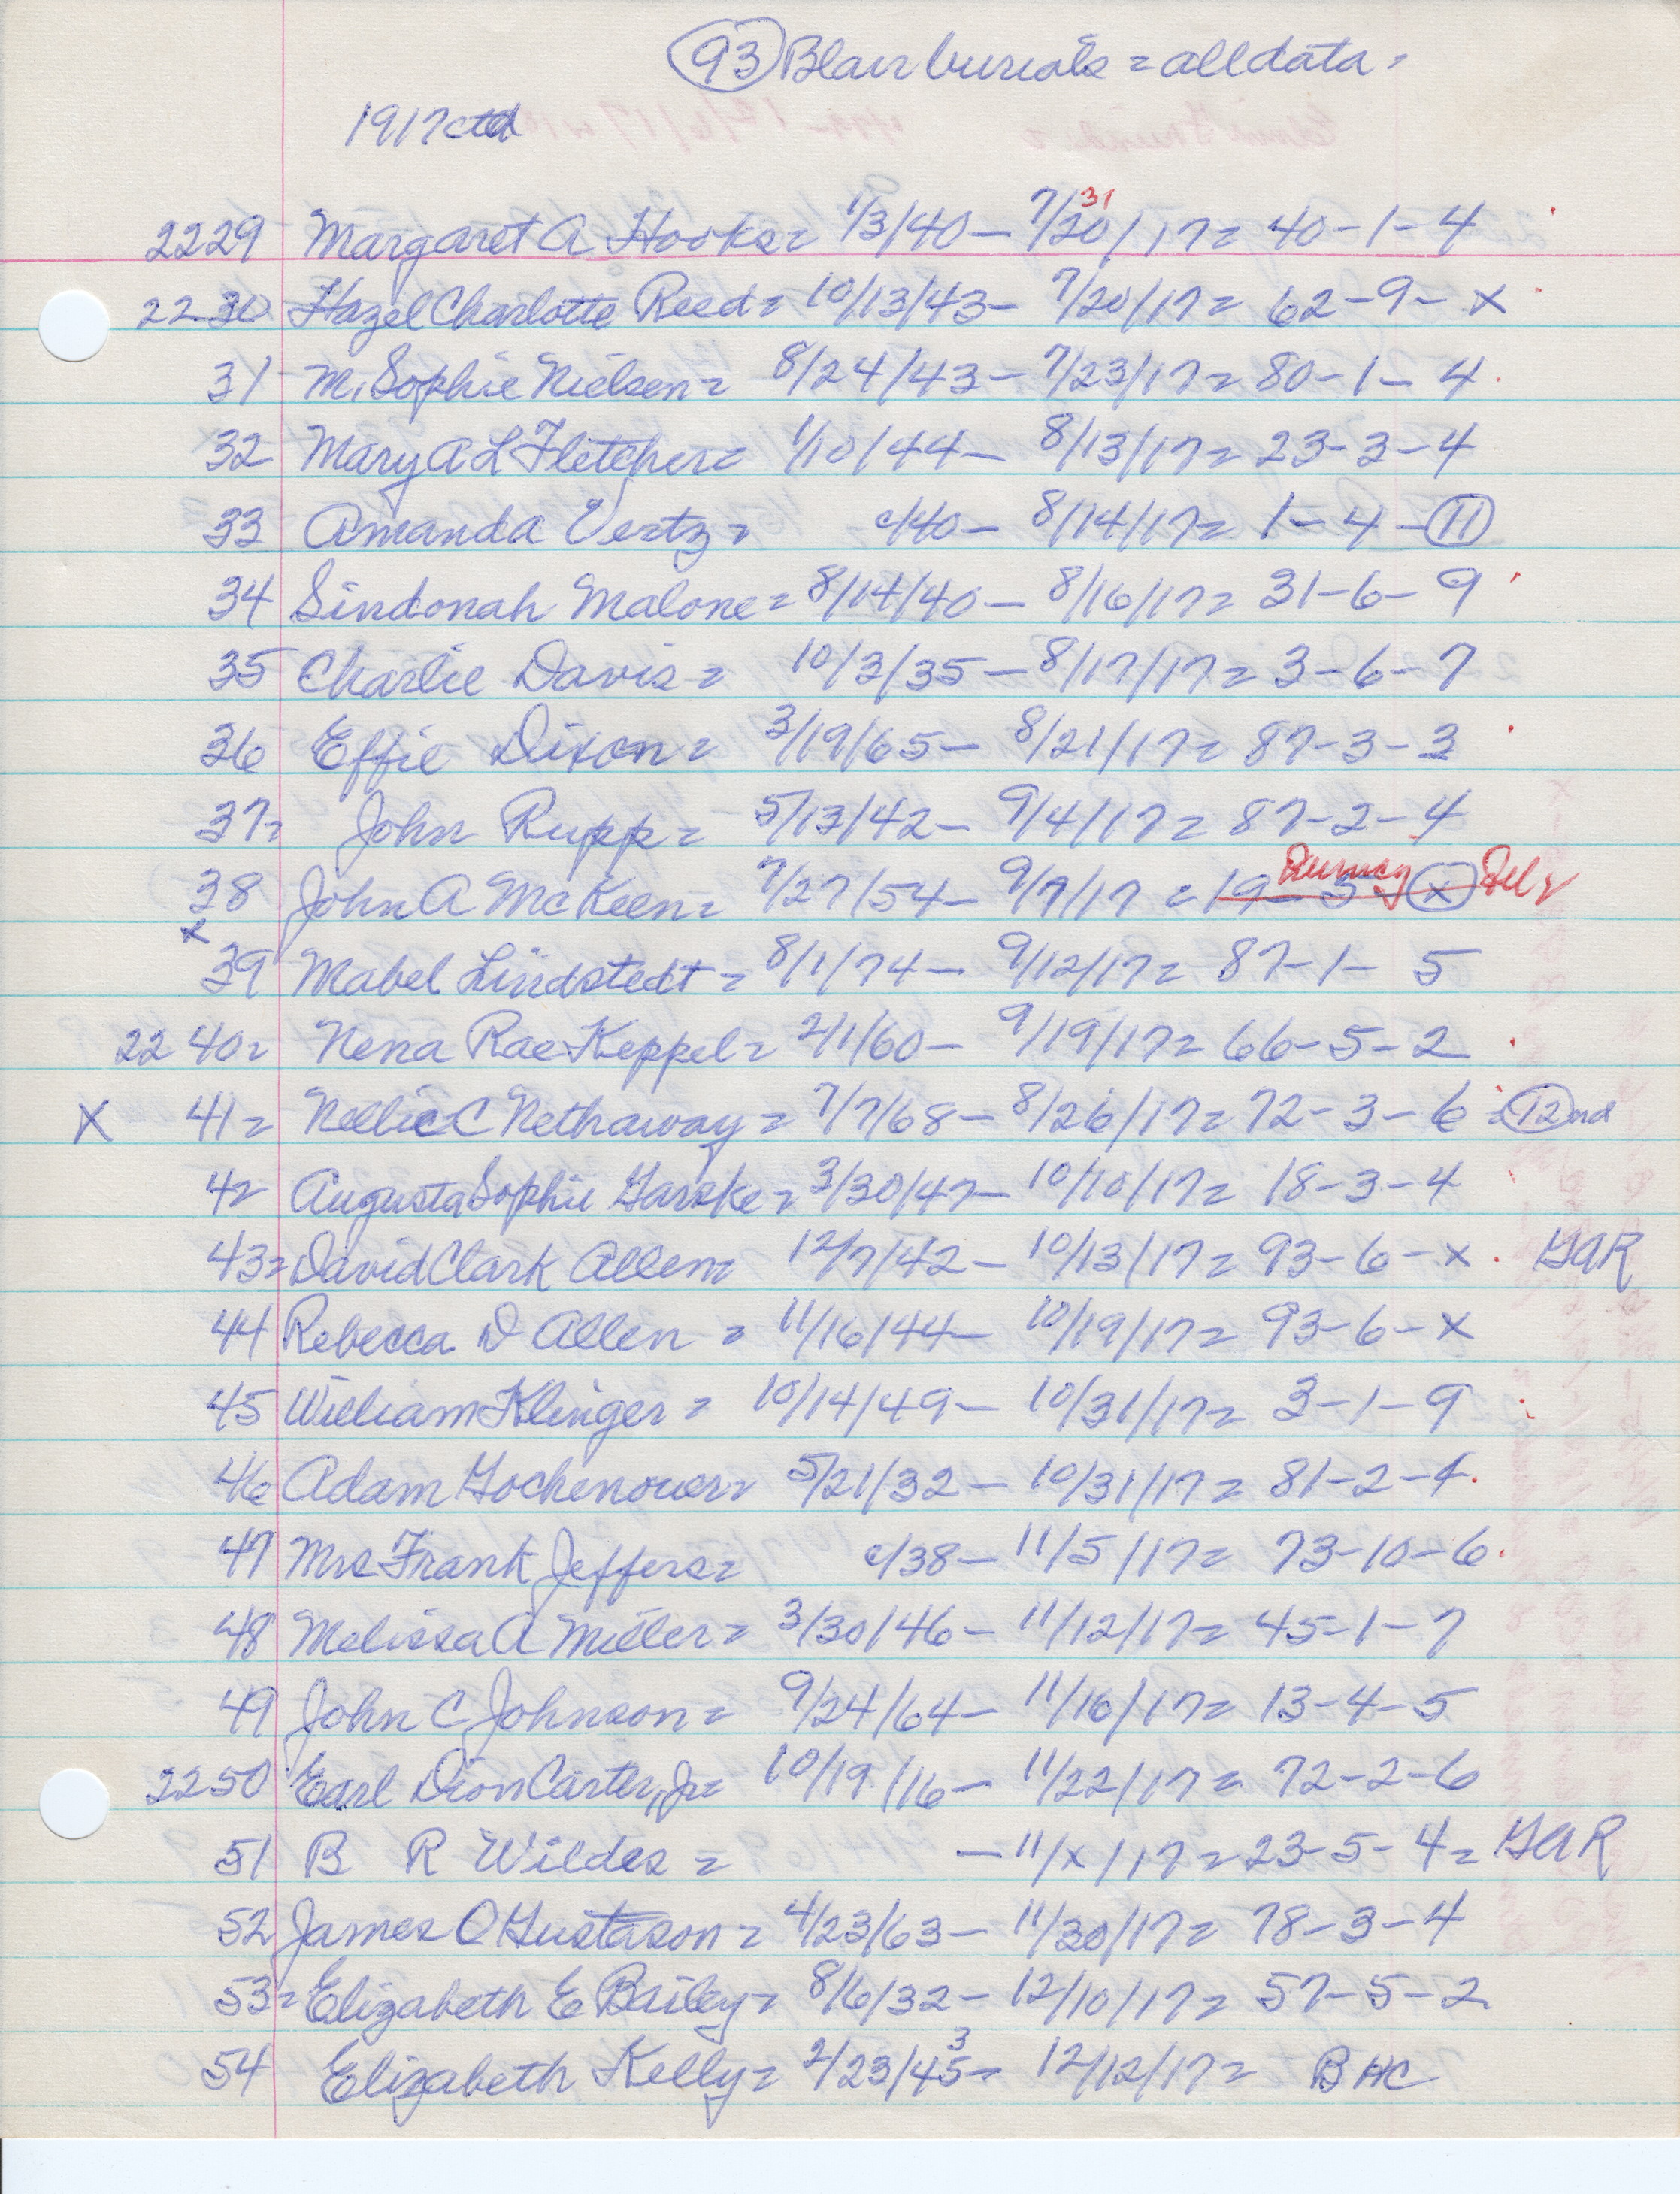 93 Blair burials = all data -
1917 ctd
2229 Margaret A Hooks = 1/3/40 - 7/20/17 = 40-1-4
31
2230 Hazel Charlotte Reed = 10/13/43 - 7/20/17 = 62-9-x
31 M. Sophie Nielsen = 8/24/43 - 7/23/17 = 80-1-4
32 Mary A L Fletcher = 1/10/44 - 8/13/17 = 23-3-4
33 Amanda Vertz = c/40 - 8/14/17 = 1-4-11
34 Sindonah Malone = 8/14/40 - 8/16/17 = 31-6-9
35 Charlie Davis = 10/3/35 - 8/17/17 = 3-6-7
36 Effie Dixon = 3/19/65 - 8/21/17 = 87-3-3
37 = John Rupp = 5/13/42 - 9/4/17 = 87-2-4
38 John A McKeen = 7/27/54 - 9/7/17 = 19-5-x
x 39 Mabel Lindstedt = 8/1/74 - 9/12/17 = 87-1-5
2240 = Nena Rae Keppel = 2/1/60 - 9/19/17 = 66-5-2
X 41 = Nellie C Nethaway = 7/7/68 - 8/26/17 = 72-3-6 = 12nd
42 Augusta Sophie Garske = 3/30/47 - 10/10/17 = 18-3-4
43 = David Clark Allen = 12/7/42 - 10/13/17 = 93-6-x GAR
44 Rebecca D Allen = 11/16/44 - 10/19/17 = 93-6-x
45 William Klinger = 10/14/49 - 10/31/17 = 3-1-9
46 Adam Gochenouer = 5/21/32 - 10/31/17 = 81-2-4
47 Mrs Frank Jeffers = c/38 - 11/5/17 = 73-10-6
48 Melissa A Miller = 3/30/46 - 11/12/17 = 45-1-7
49 John C Johnson = 9/24/64 - 11/16/17 = 13-4-5
2250 Earl Dion Carter, Jr = 10/19/16 - 11/22/17 = 72-2-6
51 B R Wildes = - 11/x/17 = 23-5-4 = GAR
52 James O Gustason = 4/23/63 - 11/30/17 = 78-3-4
53 = Elizabeth E Bailey = 8/6/32 - 12/10/17 = 57-5-2
3
54 Elizabeth Kelly = 2/23/45 = 12/12/17 = BHC